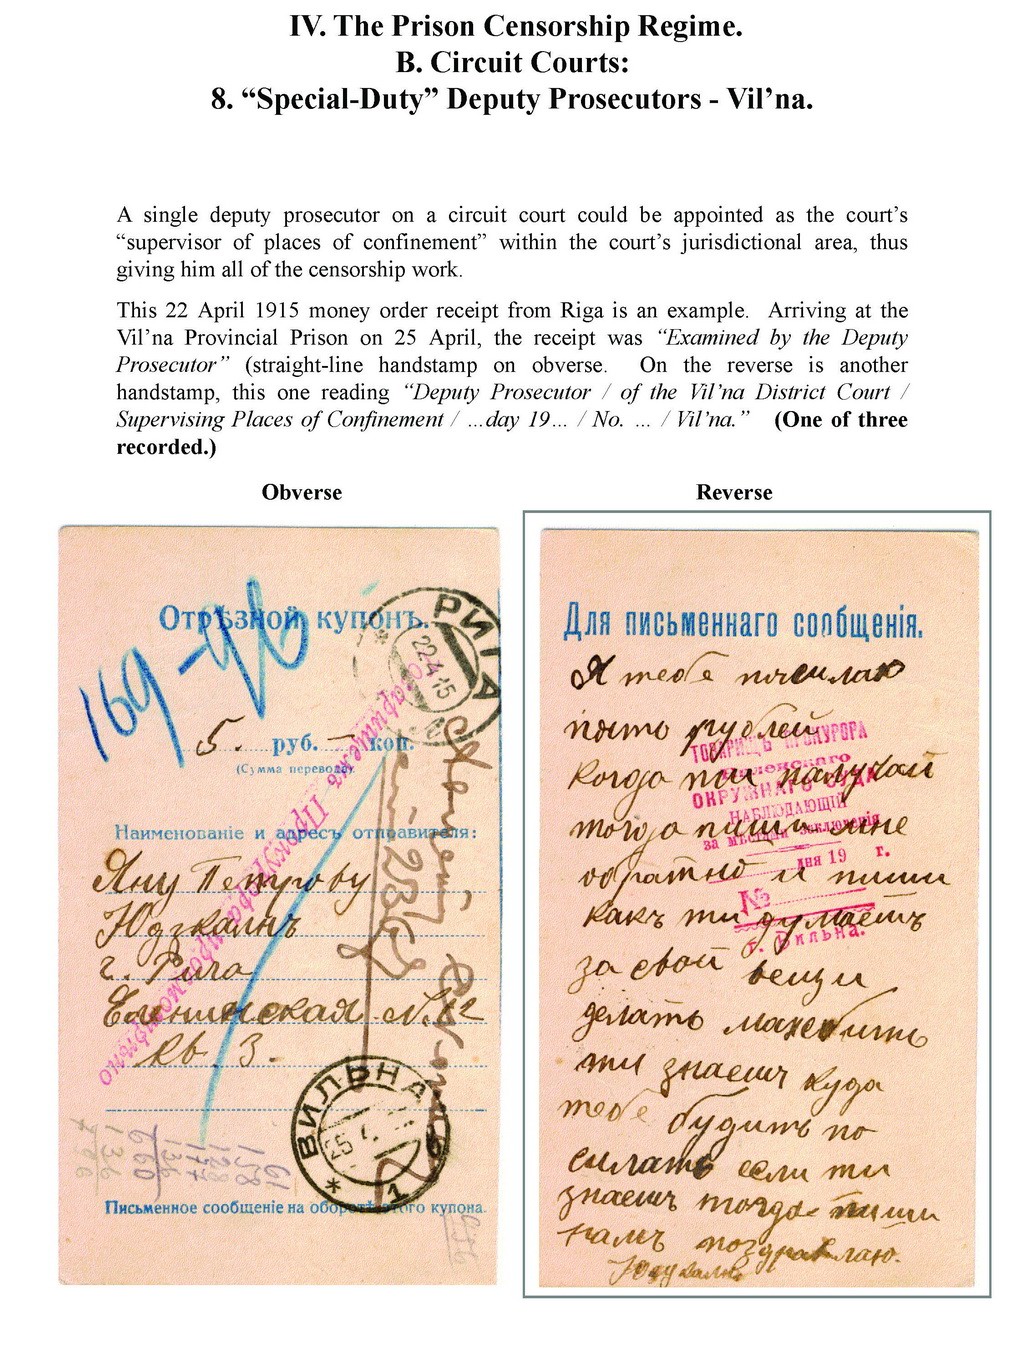 IV. The Prison Censorship Regime.
B. Circuit Courts:
8. “Special-Duty” Deputy Prosecutors - Vil’na.
A single deputy prosecutor on a circuit court could be appointed as the court’s
“supervisor of places of confinement” within the court’s jurisdictional area, thus
giving him all of the censorship work.
This 22 April 1915 money order receipt from Riga is an example. Arriving at the
Vil’na Provincial Prison on 25 April, the receipt was “Examined by the Deputy
Prosecutor” (straight-line handstamp on obverse. On the reverse is another
handstamp, this one reading “Deputy Prosecutor / of the Vil’na District Court /
Supervising Places of Confinement / …day 19… / No. … / Vil’na.” (One of three
recorded.)
Obverse
Reverse
Отрѣзной купонъ.
169-96
РИГА
22.4.15
5. руб. — коп.
(Сумма перевода)
Товарищемъ Прокурора просмотрѣно
Наименованіе и адресъ отправителя:
Яну Петрову
Юдзкалнъ
г. Рига
№ 12
кв. 3.
ВИЛЬНА
25.4.
1
Письменное сообщеніе на оборотѣ этого купона.
Для письменнаго сообщенія.
Я тебе посилаю
пять рублей
когда ти палучай
тогда пиши мне
обратно и пиши
какъ ти думаешъ
за свой вещи
делать можебить
ти знаешъ куда
тебе будить по
силать если ти
знаешъ тогда пиши
намъ поздравлаю.
Юдзкалнъ
ТОВАРИЩЪ ПРОКУРОРА
Виленскаго
ОКРУЖНАГО СУДА
НАБЛЮДАЮЩІЙ
за мѣстами заключенія
дня 19 г.
№
г. Вильна.